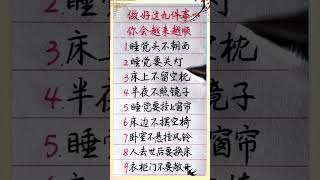 做好这九件事
你会越来越顺
1睡觉头不朝西
2睡觉要关灯
3.床上不留空枕
4.半夜不照镜子
5.睡觉要拉上窗帘
6.床边不摆空椅
7卧室不悬挂风铃
8人去世后要换床
9衣柜门不要敞开